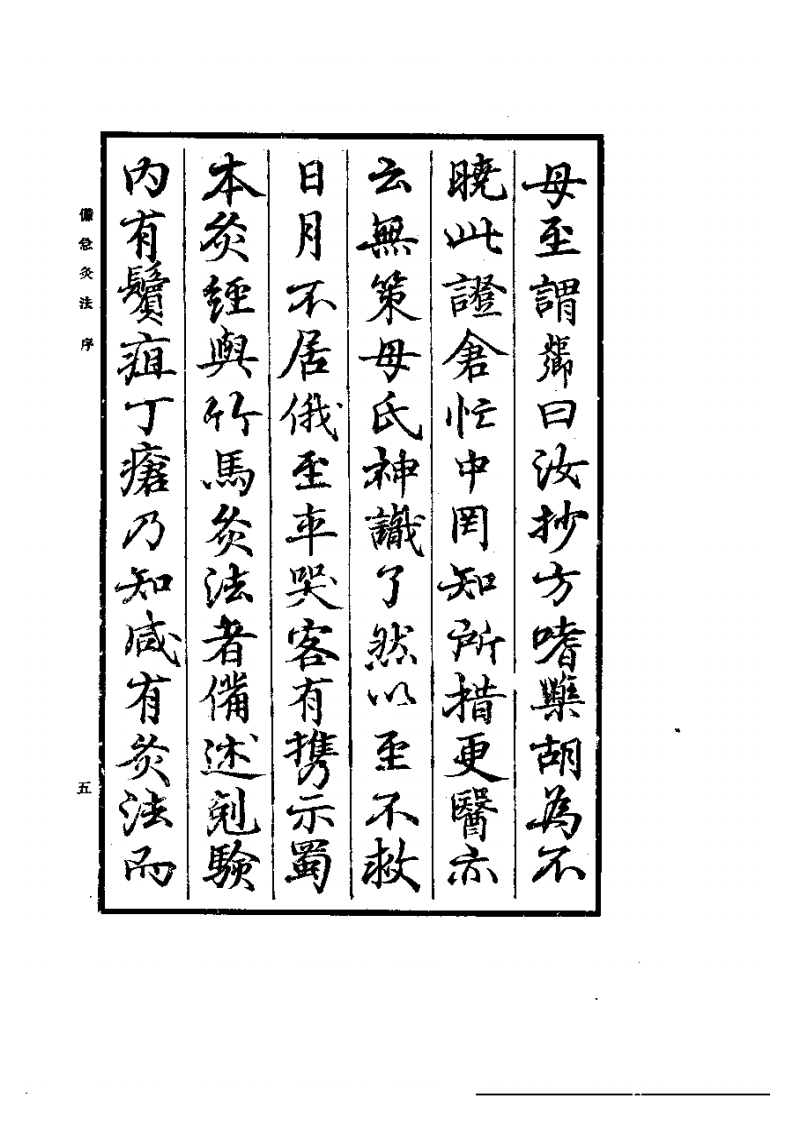 母至謂卿曰汝抄方嗜藥胡為不
曉此證倉忙中罔知所措更醫亦
云無策母氏神識了然以至不救
日月不居俄至卒哭客有携示蜀
本灸經與竹馬灸法者備述剋驗
內有鬢疽丁瘡乃知咸有灸法而
備急灸法 序
五